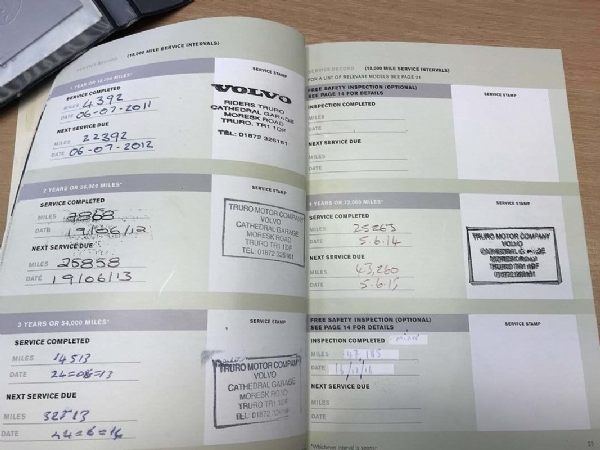 SERVICE RECORD (18,000 MILE SERVICE INTERVALS)
1 YEAR OR 18,000 MILES*
SERVICE STAMP
SERVICE COMPLETED
MILES 4392
DATE 06-07-2011
NEXT SERVICE DUE
MILES 22392
DATE 06-07-2012
VOLVO
RIDERS TRURO
CATHEDRAL GARAGE
MORESK ROAD
TRURO. TR1 1DF
TEL: 01872
2 YEARS OR 36,000 MILES*
SERVICE STAMP
SERVICE COMPLETED
MILES
DATE 19/06/12
NEXT SERVICE DUE
MILES 25858
DATE 19/06/13
TRURO MOTOR COMPANY
VOLVO
CATHEDRAL GARAGE
MORESK ROAD
TRURO TR1 1DF
TEL: 01872
3 YEARS OR 54,000 MILES*
SERVICE STAMP
SERVICE COMPLETED
MILES 14513
DATE
NEXT SERVICE DUE
MILES 32513
DATE
TRURO MOTOR COMPANY
VOLVO
CATHEDRAL GARAGE
MORESK ROAD
TRURO TR1 1DF
TEL: 01872
SERVICE RECORD (18,000 MILE SERVICE INTERVALS)
FOR A LIST OF RELEVANT MODELS SEE PAGE
FREE SAFETY INSPECTION (OPTIONAL)
SEE PAGE 14 FOR DETAILS
SERVICE STAMP
INSPECTION COMPLETED
MILES
DATE
NEXT SERVICE DUE
MILES
DATE
4 YEARS OR 72,000 MILES*
SERVICE STAMP
SERVICE COMPLETED
MILES 25263
DATE 5.6.14
NEXT SERVICE DUE
MILES 43,260
DATE 5.6.15
TRURO MOTOR COMPANY
VOLVO
CATHEDRAL
MORESK ROAD
TRURO TR1 1DF
FREE SAFETY INSPECTION (OPTIONAL)
SEE PAGE 14 FOR DETAILS
SERVICE STAMP
INSPECTION COMPLETED
MILES
DATE
NEXT SERVICE DUE
MILES
DATE
*Whichever interval is sooner
21